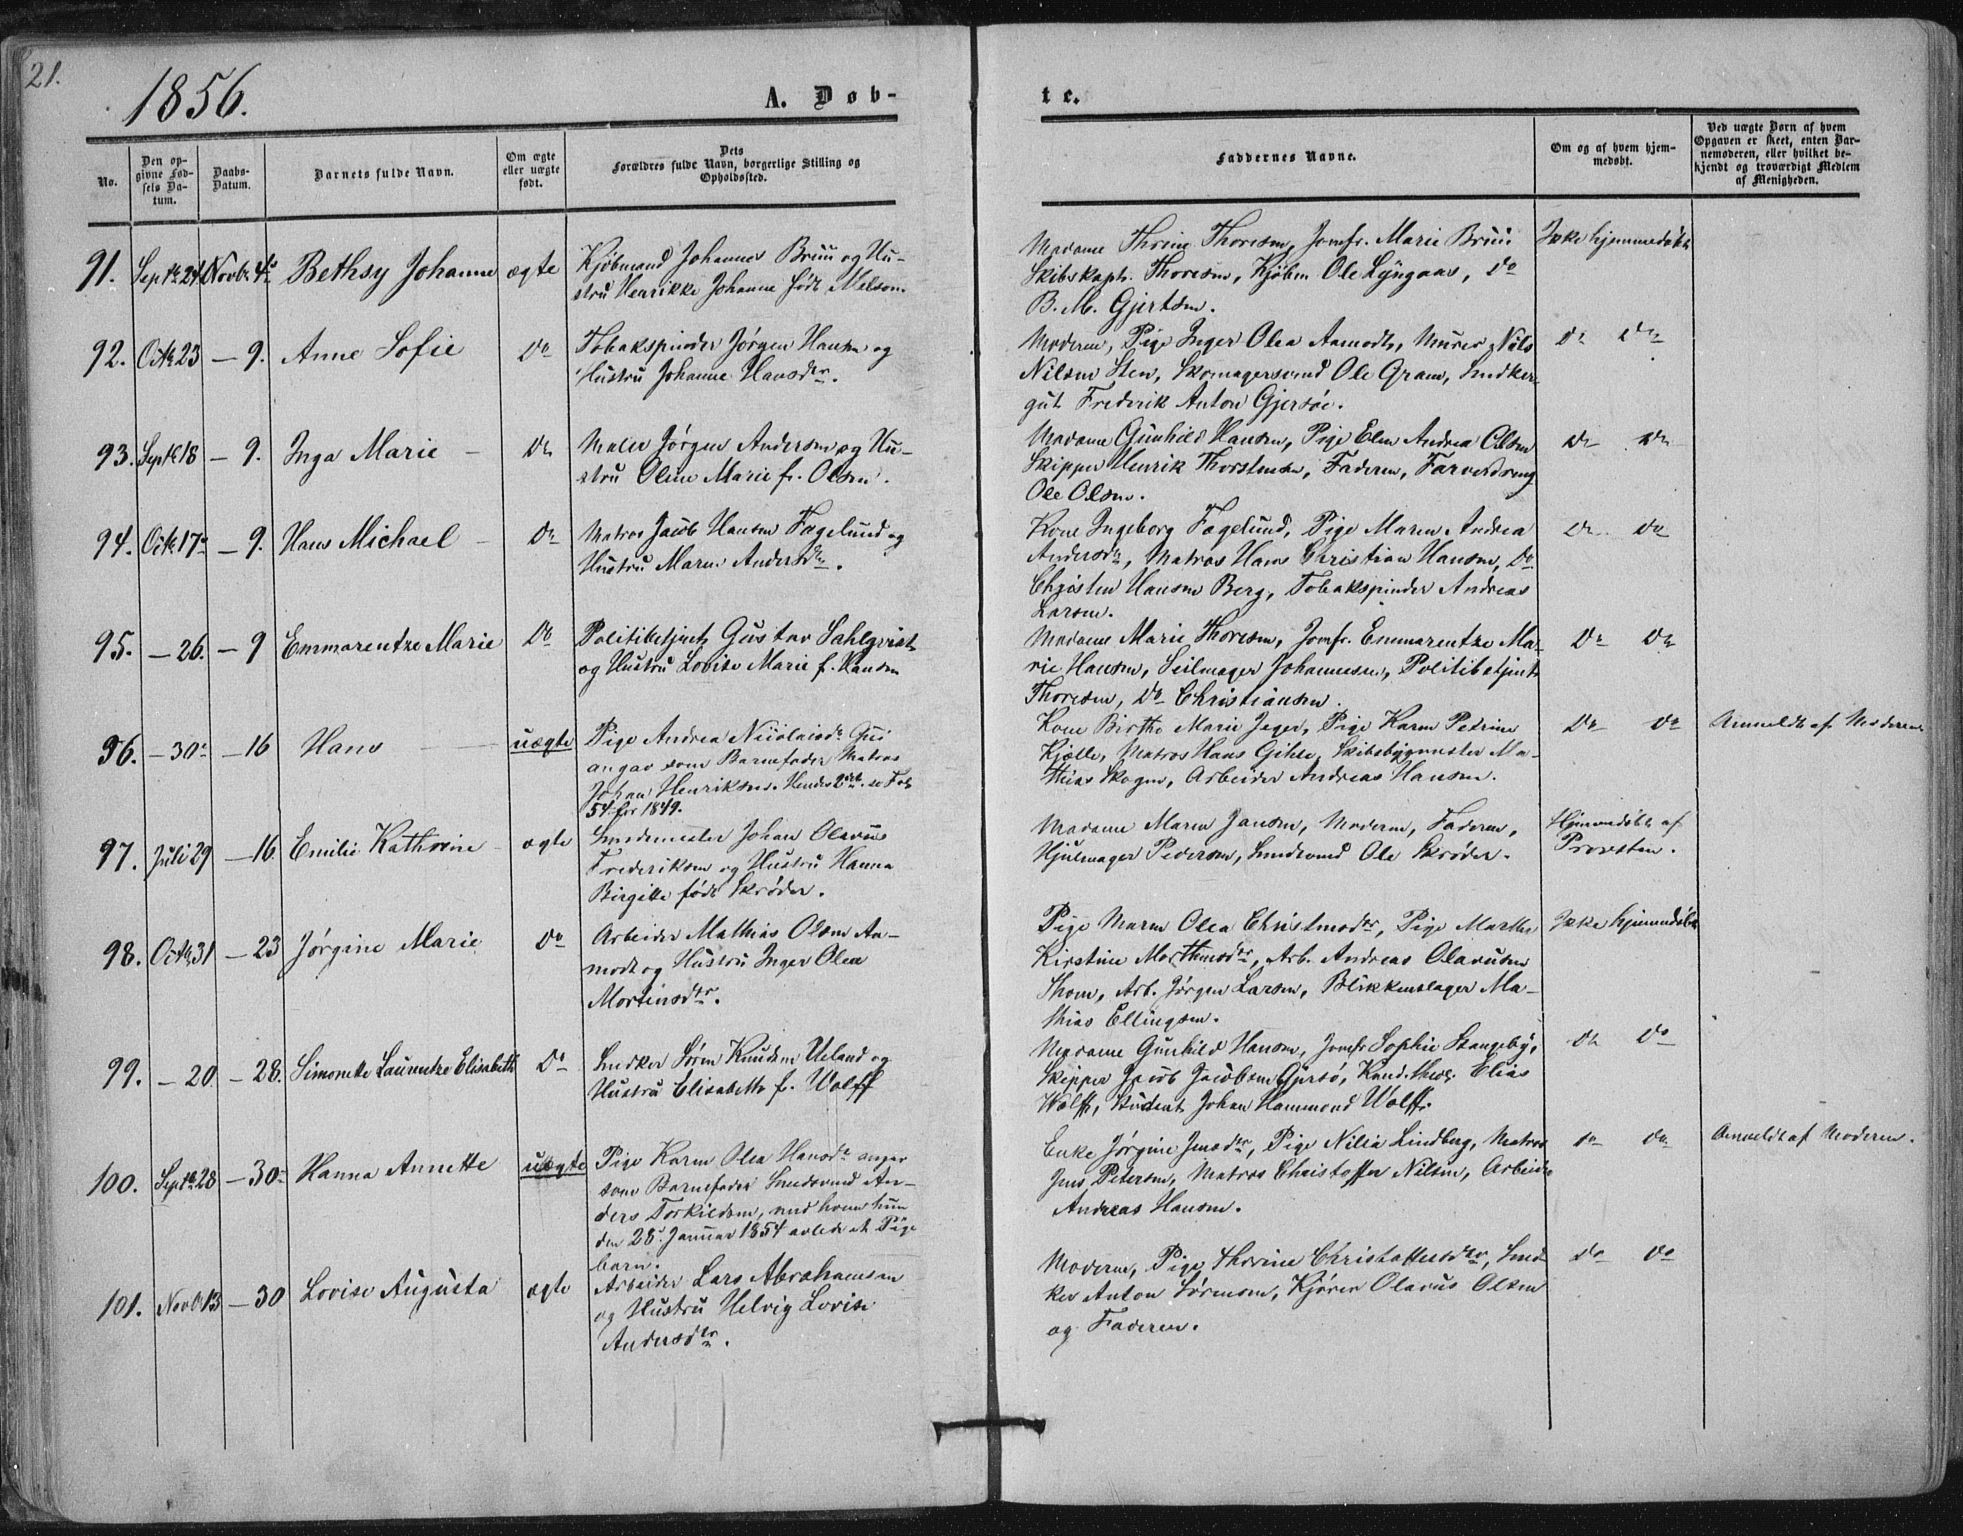 21.
1856.
A. Døb-
te.
No.
Den op-
givne Fød-
sels Da-
tum.
Daabs-
Datum.
Barnets fulde Navn.
Om ægte
eller uægte
født.
Dets
Forældres fulde Navn, borgerlige Stilling og
Opholdssted.
Faddernes Navne.
Om og af hvem hjem-
medøbt.
Ved uægte Børn af hvem
Opgaven er skeet, enten Bar-
nemoderen, eller hvilket be-
kjendt og troværdigt Medlem
af Menigheden.
91. Septbr 24 Novbr 4de Bethsy Johanne ægte
Kjøbmand Johannes Bruu og Hu-
stru Henrikke Johanne født Melsom
Madame Thrine Thoresen, Jomfr. Marie Bruu
Skibskapt. Thoresen, Kjøbm. Ole Lyngaas, Do
B. M. Gjertsen.
Ikke hjemmedøbt
92. Octbr 23 — 9. Anne Sofie Do
Tobakspinder Jørgen Hansen og
Hustru Johanne Hansdr.
Moderen, Pige Inger Olea Aamodt, Murer Nils
Nilsen Sten, Skomagersvend Ole Gram, Snedker-
gut Frederik Anton Gjersøe.
Do Do
93. Septbr 18 — 9. Inga Marie — Do
Maler Jørgen Andersen og Hu-
stru Oline Marie f. Olsen.
Madame Gunhild Hansen, Pige Elen Andrea Olsen
Skipper Henrik Thorstensen, Faderen, Farverdreng
Ole Olsen.
Do Do
94. Octbr 17de — 9. Hans Michael — Do
Matros Jacob Hansen Fagelund og
Hustru Maren Andersdr.
Kone Ingeborg Fagelund, Pige Maren Andrea
Andersdr, Matros Hans Christian Hansen, Do
Christen Hansen Berg, Tobakspinder Andreas
Larsen.
Do Do
95. — 26. — 9 Emmarentze Marie Do
Politibetjent Gustav Sahlqvist
og Hustru Lovise Marie f. Hansen
Madame Marie Thoresen, Jomfr. Emmarentze Ma-
rie Hansen, Seilmager Johannesen, Politibetjent
Thoresen, Do Christiansen.
Do Do
96. — 30te — 16 Hans — uægte
Pige Andrea Nicolaisdr
angav som Barnefader Matros
Johan Henriksen. Hendes 2det se Fol.
54 for 1849.
Kone Birthe Marie Jeger, Pige Karen Petrine
Kjølle, Matros Hans Gihle, Skibsbygmester Ma-
thias Skogen, Arbeider Andreas Hansen.
Do Do
Anmeldt af Moderen
97. Juli 29 — 16. Emilie Kathrine — ægte
Smedemester Johan Olavus
Frederiksen og Hustru Hanna
Birgitte født Skrøder.
Madame Maren Jansen, Moderen, Faderen,
Hjulmager Pedersen, Smedsvend Ole Skrøder.
Hjemmedøbt af
Provsten.
98. Octbr 31 — 23 Jørgine Marie Do
Arbeider Mathias Olsen Aa-
modt og Hustru Inger Olea
Mortensdtr.
Pige Maren Olea Christensdtr, Pige Marthe
Kirstine Morthensdtr, Arb. Andreas Olavusen
Thom, Arb. Jørgen Larsen, Blikkenslager Ma-
thias Ellingsen.
Ikke hjemmedøbt
99. — 20 — 28. Simonette Laurentze Elisabeth Do
Snedker Søren Knudsen Ueland og
Hustru Elisabeth f. Wolff
Madame Gunhild Hansen, Jomfr Sophie Stangeby,
Skipper Jacob Jacobsen Gjersø, Kand. theol. Elias
Wolff, Student Johan Hammond Wolff.
Do Do
100. Septbr 28 — 30te Hanna Annette uægte
Pige Karen Olea Hansdr angav
som Barnefader Smedsvend An-
ders Torkildsen, med hvem hun
den 28. Januar 1854 avlede et Pige
barn.
Enke Jørgine Jensdtr, Pige Nilia Lindberg, Matros
Jens Petersen, Matros Christoffer Nilsen, Arbeider
Andreas Hansen.
Do Do
Anmeldt af Moderen.
101. Novbr 13 — 30 Lovise Augusta ægte
Arbeider Lars Abrahamsen
og Hustru Helvig Lovise
Andersdtr.
Moderen, Pige Thorine Christoffersdtr, Sned-
ker Anton Sørensen, Kjører Olavus Olsen
og Faderen.
Do Do